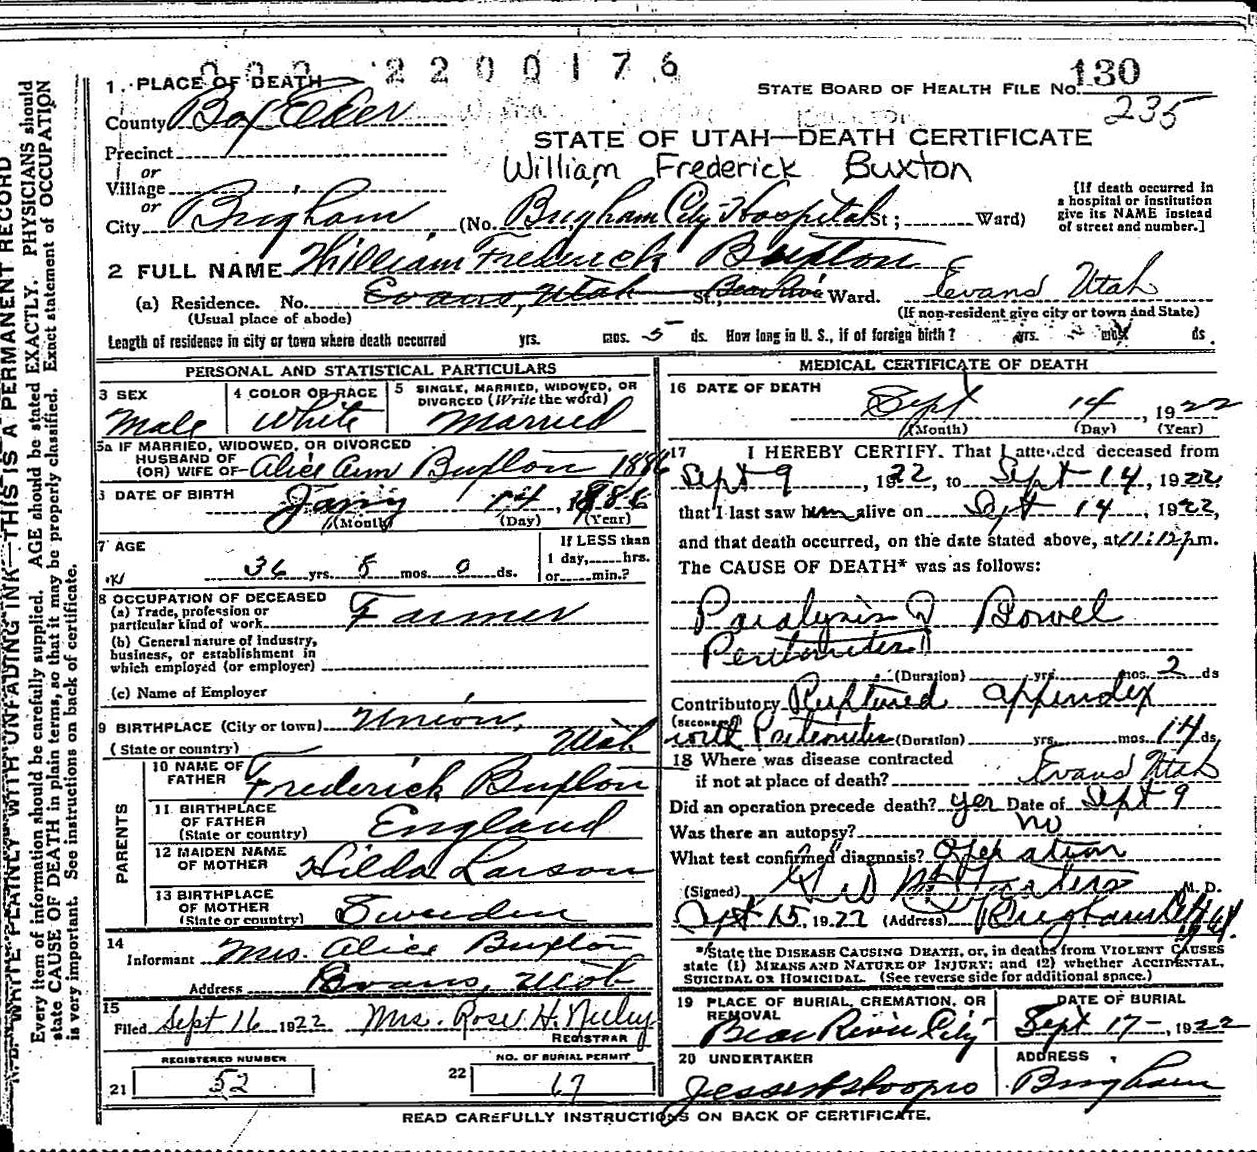 2200176
1. PLACE OF DEATH
STATE BOARD OF HEALTH FILE No. 130
235
County Box Elder
STATE OF UTAH—DEATH CERTIFICATE
Precinct
or
William Frederick Buxton
Village
or
City Brigham (No. Brigham City Hospital St; Ward)
[If death occurred in a hospital or institution give its NAME instead of street and number.]
2 FULL NAME William Frederick Buxton
(a) Residence. No. Evans, Utah St; Bear River Ward. Evans Utah
(Usual place of abode) (If non-resident give city or town and State)
Length of residence in city or town where death occurred yrs. mos. 5 ds. How long in U. S., if of foreign birth? yrs. mos. ds.
PERSONAL AND STATISTICAL PARTICULARS
3 SEX Male
4 COLOR OR RACE White
5 SINGLE, MARRIED, WIDOWED, OR DIVORCED (Write the word) Married
5a IF MARRIED, WIDOWED, OR DIVORCED
HUSBAND OF
(OR) WIFE OF Alice Ann Buxton 1886
DATE OF BIRTH Jany 14, 1886
(Month) (Day) (Year)
7 AGE 36 yrs. 8 mos. 0 ds.
If LESS than 1 day, hrs. or min.?
8 OCCUPATION OF DECEASED
(a) Trade, profession or particular kind of work Farmer
(b) General nature of industry, business, or establishment in which employed (or employer)
(c) Name of Employer
9 BIRTHPLACE (City or town) Union,
(State or country) Utah
PARENTS
10 NAME OF FATHER Frederick Buxton
11 BIRTHPLACE OF FATHER (State or country) England
12 MAIDEN NAME OF MOTHER Hilda Larson
13 BIRTHPLACE OF MOTHER (State or country) Sweden
14
Informant Mrs. Alice Buxton
Address Evans, Utah
15
Filed Sept 16 1922 Mrs. Rose H. Neeley
REGISTRAR
REGISTERED NUMBER
21 52
NO. OF BURIAL PERMIT
22 67
MEDICAL CERTIFICATE OF DEATH
16 DATE OF DEATH
Sept 14, 1922
(Month) (Day) (Year)
17 I HEREBY CERTIFY. That I attended deceased from
Sept 9, 1922, to Sept 14, 1922
that I last saw him alive on Sept 14 1922,
and that death occurred, on the date stated above, at 11:12 p.m.
The CAUSE OF DEATH* was as follows:
Paralysis of Bowel
Peritonitis
(Duration) yrs. mos. 2 ds
Contributory Ruptured appendix
with Peritonitis (Duration) yrs. mos. 14 ds.
18 Where was disease contracted
if not at place of death? Evans Utah
Did an operation precede death? yes Date of Sept 9
Was there an autopsy? no
What test confirmed diagnosis? Operation
(Signed) M. D.
Sept 15, 1922 (Address) Brigham City Utah
*State the DISEASE CAUSING DEATH, or, in deaths from VIOLENT CAUSES
state (1) MEANS AND NATURE OF INJURY; and (2) whether ACCIDENTAL,
SUICIDAL OR HOMICIDAL. (See reverse side for additional space.)
19 PLACE OF BURIAL, CREMATION, OR REMOVAL
Bear River City
DATE OF BURIAL
Sept 17-, 1922
20 UNDERTAKER
ADDRESS
Brigham
READ CAREFULLY INSTRUCTIONS ON BACK OF CERTIFICATE.
WRITE PLAINLY WITH UNFADING INK—THIS IS A PERMANENT RECORD
Every item of information should be carefully supplied. AGE should be stated EXACTLY. PHYSICIANS should
state CAUSE OF DEATH in plain terms, so that it may be properly classified. Exact statement of OCCUPATION
is very important. See instructions on back of certificate.